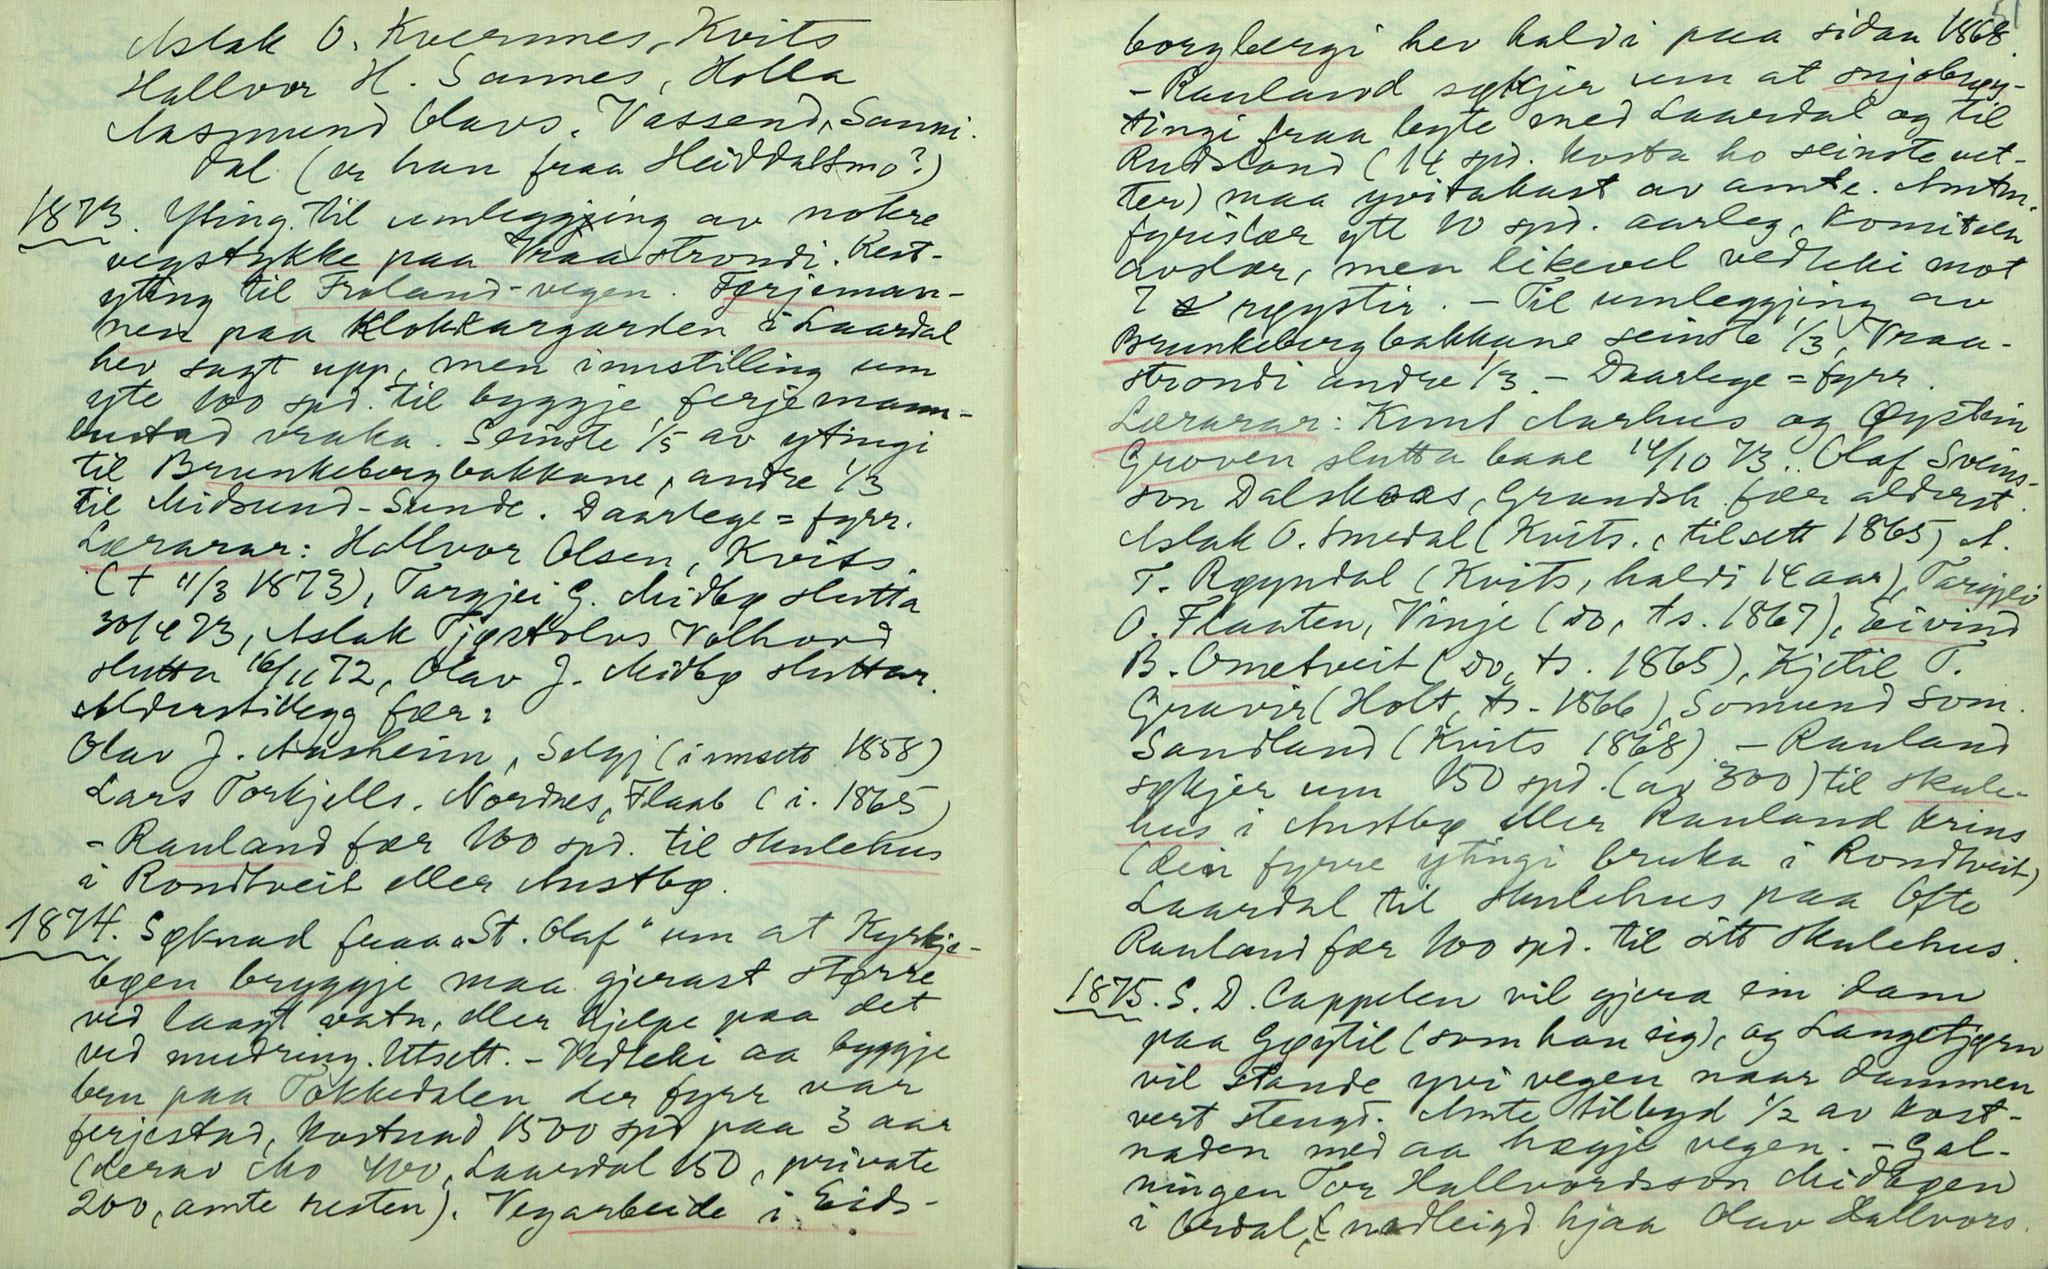 Aslak O. Kvernnes, Kvits
Hallvor H. Sannes, Holla
Aasmund Olavs. Vassend, Sanni-
dal (er han fraa Heiddalsmo?)
1873. Yting til umleggjing av nokre
vegstykke paa Vraastrondi. Rest-
yting til Froland-vegen. Ferjeman-
nen paa Klokkargarden i Laardal
hev sagt upp, men innstilling um
yte 100 spd. til byggje ferjemann-
bustad vraka. Seinste 1/5 av ytingi
til Brunkebergbakkane, andre 1/3
til Midsund-Sunde. Daarlege = fyrr.
Lærarar: Hallvor Olsen, Kvits.
(+ 11/3 1873), Targjei G. Midbø slutta
30/4 73, Aslak Tjøstolvs Valhovd
slutta 16/11 72, Olav J. Midbø sluttar.
Alderstillegg fær:
Olav J. Aasheim, Selgj (innsett 1858)
Lars Torkjells. Nordnes, Flaab (i. 1865)
- Rauland fær 100 spd. til skulehus
i Rondtveit eller Austbø.
1874. Søknad fraa "St. Olaf" um at Kyrkje-
bøen bryggje maa gjerast større
ved laagt vatn, eller hjelpe paa det
ved mudring. Utsett. - Vedteki aa byggje
bru paa Tokkedalen der fyrr var
ferjestad, kostnad 1500 spd paa 3 aar
(derav Mo 400, Laardal 150, private
200, amte resten). Vegarbeide i Eids-
borgbergi hev haldi paa sidan 1868.
- Rauland søkjer um at snjobrøy-
tingi fraa byte med Laardal og til
Rudsland (14 spd. kosta ho seinste vet-
ter) maa yvitakast av amte. Amtm.
fyrislær yte 10 spd. aarleg, komiteen
avslær, men likevel vedteki mot
7 røystir. - Til umleggjing av
Brunkebergbakkane seinste 1/3, Vraa-
strondi andre 1/3 - Daarlege = fyrr.
Lærarar: Knut Aarhus og Øystein
Groven slutta baae 14/10 73. Olaf Sveins-
son Dalskaas, Grunnsk. fær alderst.
Aslak O. Smedal (Kvits., tilsett 1865) A.
T. Røyndal (Kvits, haldi 14 aar), Targjei
O. Flaaten, Vinje (do, ts. 1867), Eivind
B. Ometveit (do, ts. 1865), Kjetil T.
Gravir (Holt, ts. 1866), Somund Som.
Sandland (Kvits 1868) - Rauland
søkjer um 150 spd. (av 300) til skule-
hus i Austbø eller Rauland krins
(dein fyrre ytingi bruka i Rondtveit)
Laardal til skulehus paa Ofte
Rauland fær 100 spd. til sitt skulehus.
1875. S. D. Cappelen vil gjera ein dam
paa Gøytil (som han eig), og Langetjørn
vil stande yvi vegen naar dammen
vert stengd. Amte tilbyd 1/2 av kost-
naden med aa høgje vegen. - Gal-
ningen Tor Hallvordsson Midbøen
i Ordal, nedleigd hjaa Olav Hallvors.